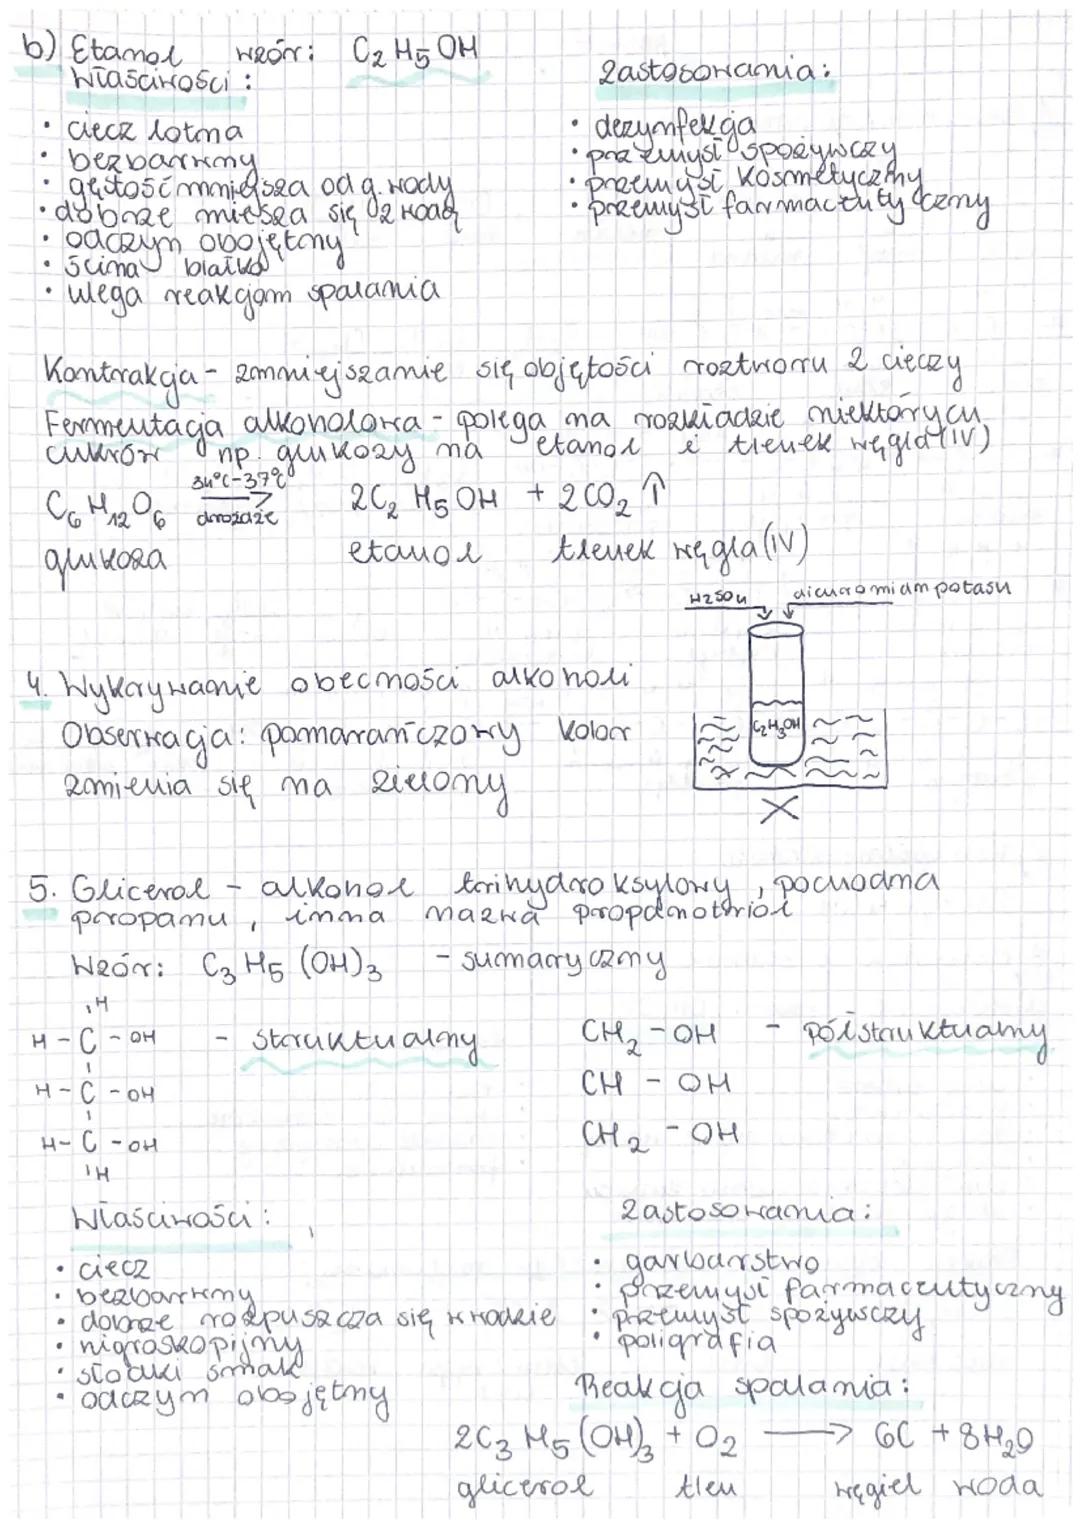 b) Etanol wzór: C₂H₅OH
Właściwości:
• ciecz lotna
• bezbarwny
• gęstość mniejsza od g. wody
• dobrze miesza się z wodą
• odczyn obojętny
• ścina białka
• ulega reakcjom spalania
Zastosowania:
• dezynfekcja
• przemysł spożywczy
• przemysł kosmetyczny
• przemysł farmaceutyczny
Kontrakcja - zmniejszanie się objętości roztworu 2 cieczy
Fermentacja alkoholowa - polega na rozkładzie niektórych
cukrów np. glukozy na etanol i tlenek węgla (IV)
34°C-37°C
C₆H₁₂O₆ → 2C₂H₅OH + 2CO₂ ↑
drożdże
glukoza etanol tlenek węgla (IV)
H2SO4 dichromian potasu
C₂H₅OH
4. Wykrywanie obecności alkoholi
Obserwacja: pomarańczowy kolor
zmienia się na zielony
5. Glicerol - alkohol trihydroksylowy, pochodna
propanu, inna nazwa propanotriol
Wzór: C₃H₅(OH)₃ - sumaryczny
H
H - C - OH - struktualny
H - C - OH
H - C - OH
H
CH₂ - OH - półstruktualny
CH - OH
CH₂ - OH
Właściwości:
• ciecz
• bezbarwny
• dobrze rozpuszcza się w wodzie
• higroskopijny
• słodki smak
• odczyn obojętny
Zastosowania:
• garbarstwo
• przemysł farmaceutyczny
• przemysł spożywczy
• poligrafia
Reakcja spalania:
2C₃H₅(OH)₃ + O₂ → 6C + 8H₂O
glicerol tlen węgiel woda